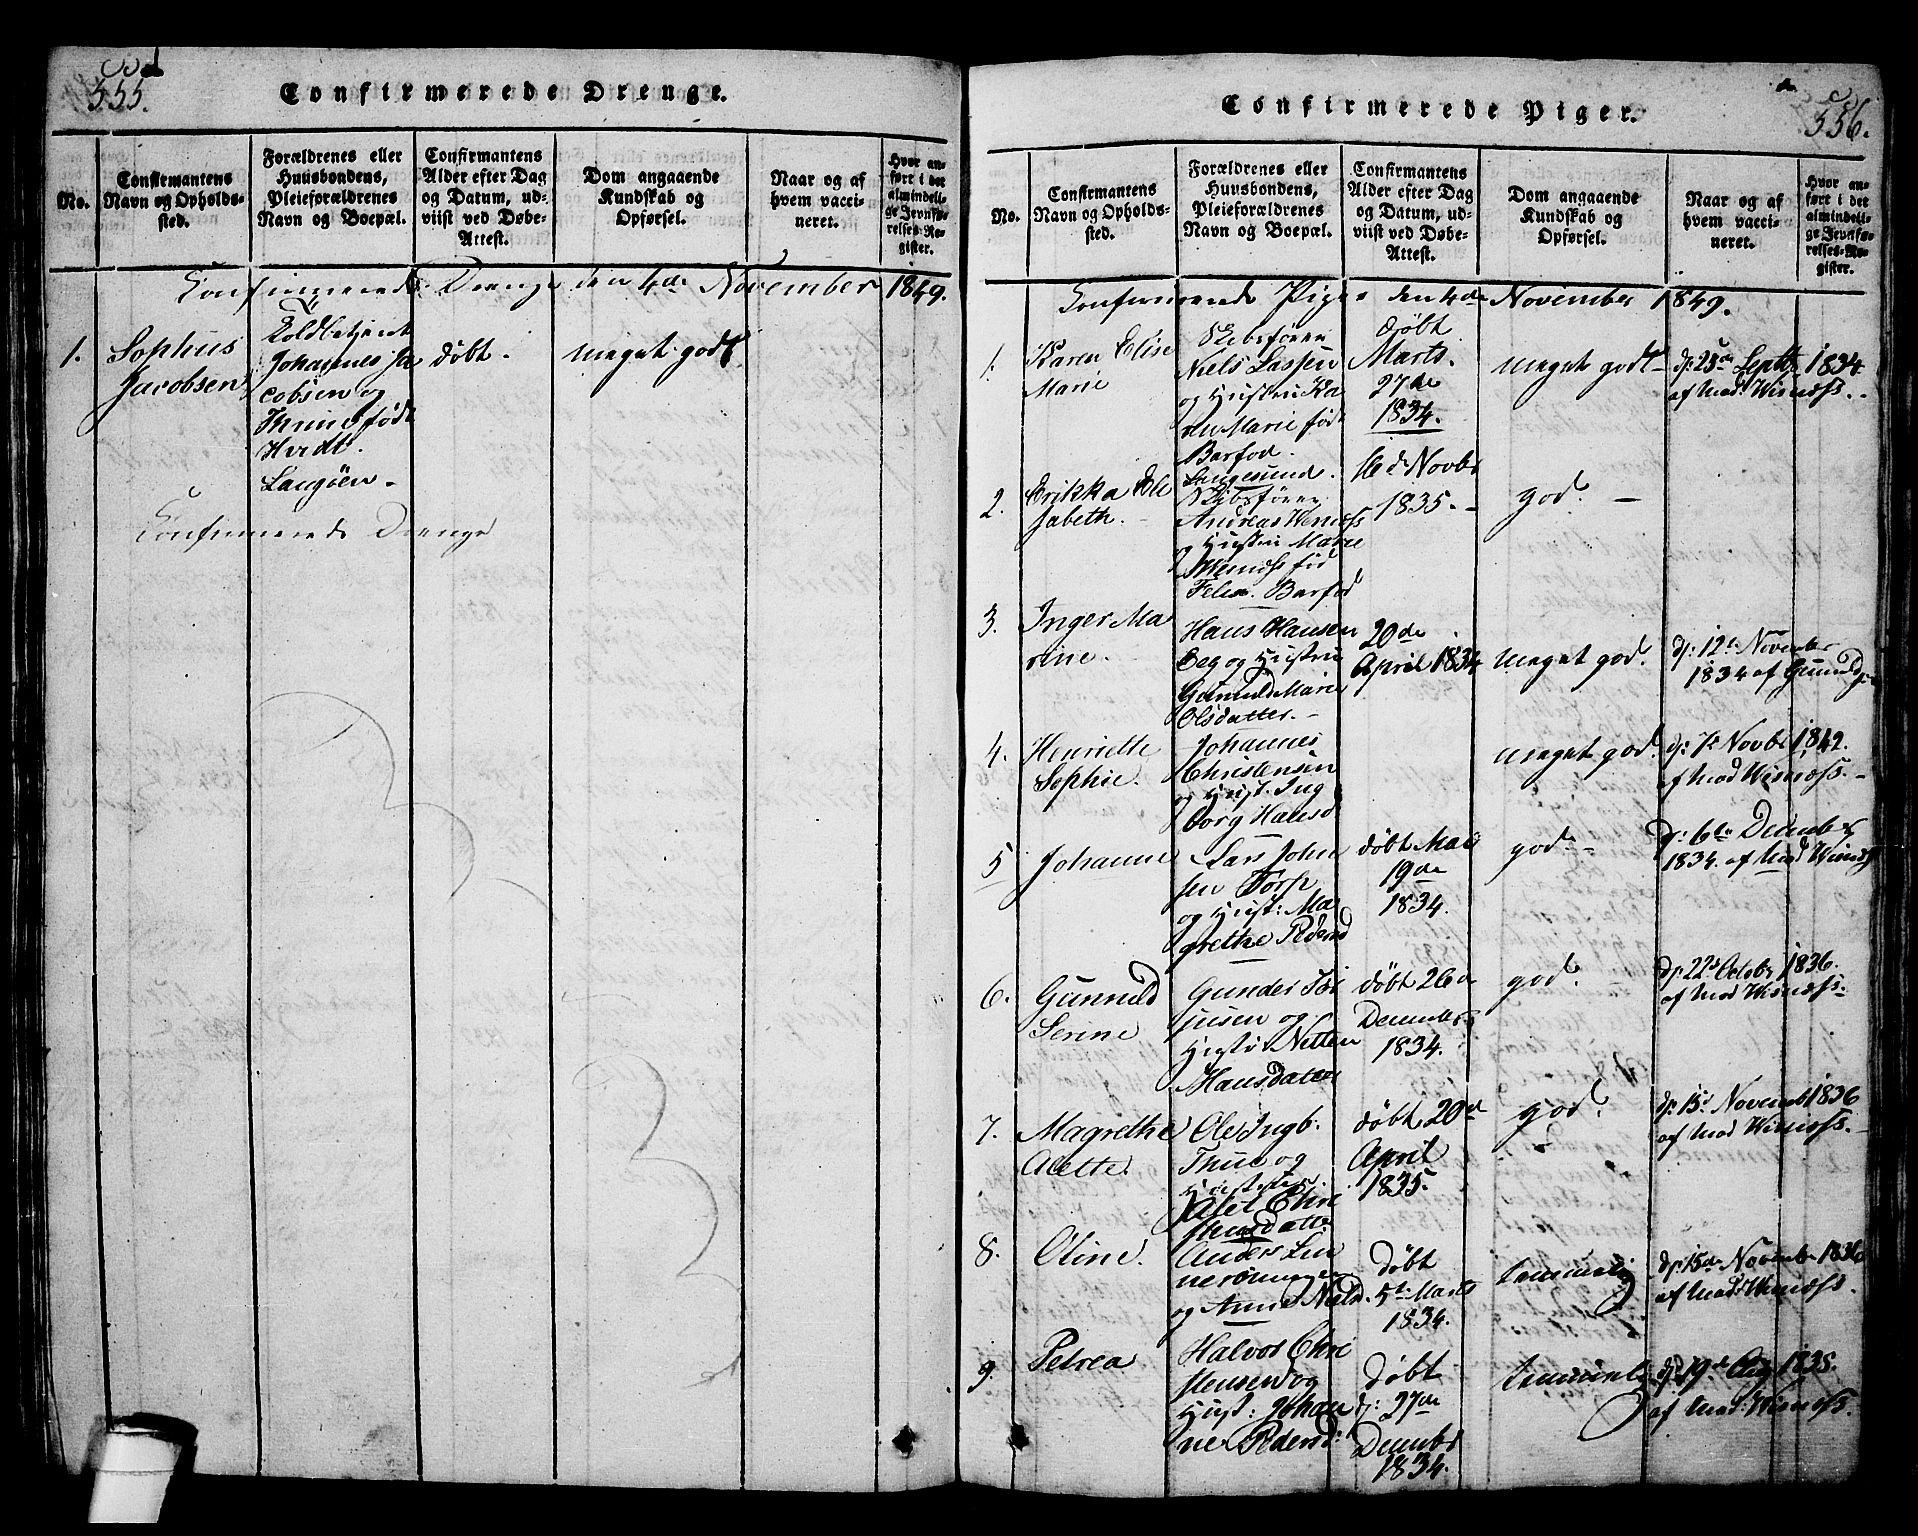 555.
Confirmerede Drenge.
No.
Confirmantens
Navn og Opholds-
sted.
Forældrenes eller
Huusbondens,
Pleieforældrenes
Navn og Boepæl.
Confirmantens
Alder efter Dag
og Datum, ud-
viist ved Døbe-
Attest.
Dom angaaende
Kundskab og
Opførsel.
Naar og af
hvem vacci-
neret.
Hvor an-
ført i det
almindeli-
ge Jevnfø-
relses-Re-
gister.
Konfirmerede Drenge den 4de November 1849.
1.
Sophus
Jacobsen
Toldbetjent
Johannes Ja
cobsen og
født
Hvidt.
Langøen.
døbt.
meget godt
Konfirmerede Drenge
556.
Confirmerede Piger.
No.
Confirmantens
Navn og Opholds-
sted.
Forældrenes eller
Huusbondens,
Pleieforældrenes
Navn og Boepæl.
Confirmantens
Alder efter Dag
og Datum, ud-
viist ved Døbe-
Attest.
Dom angaaende
Kundskab og
Opførsel.
Naar og af
hvem vacci-
neret.
Hvor an-
ført i det
almindeli-
ge Jevnfø-
relses-Re-
gister.
Konfirmerede Piger den 4de November 1849.
1.
Karen Elise
Marie
Skibsfører
Niels Lassen
og Hustru Ka
ren Marie født
Barfod.
Langesund.
døbt
Marts
27de
1834.
meget godt
d: 25de Septbr 1834
af Mad: Wisness.
2.
Erikka Eli
sabeth.
Skibsfører
Andreas Wisness
og Hustru Marie
Wisness fød
Barfod
16d Novbr
1835.
god.
3.
Inger Ma
rine.
Hans Hansen
og Hustru
Gunnild Marie
Olsdatter.
20de
April 1834
meget god.
d: 12te November
1834 af
4.
Henriette
Sophie.
Johannes
Christensen
og Hust. Ing
borg Hansd
meget god.
d: 7de Novbr 1842.
af Mad Wisness.
5
Johanne
Lars John
sen Torp
og Hust: Ma
grethe Pedersd
døbt Mai
19de
1834.
god.
d: 6te December
1834. af Mad Wisness
6.
Gunnild
Serine
Gunder Ter
jusen og
Hustr Netten
Hansdatter
døbt 26de
December
1834.
god.
d: 22d Octobr 1836.
af Mad Wisness.
7.
Magrethe
Alette.
Ole Ingb.
Thue og
Hustrue
Alet Chri
stensdatte
døbt 20de
April
1835.
god.
d: 15d Novemb 1836
af Mad Wisness.
8.
Oline.
Anders Lin
nerönningen
og Anne Nielsd.
Døbt
5te Marts
1834.
temmelig
d: 15de Novembr 1836
af Mad: Wisness.
9.
Petrea
Halvor Chri
stensen og
Hust: Johan
ne Pedersd:
Døbt
d: 27de
Decembr
1834.
temmelig
d: 19de Aug 1835.
af Mad: Wisness.